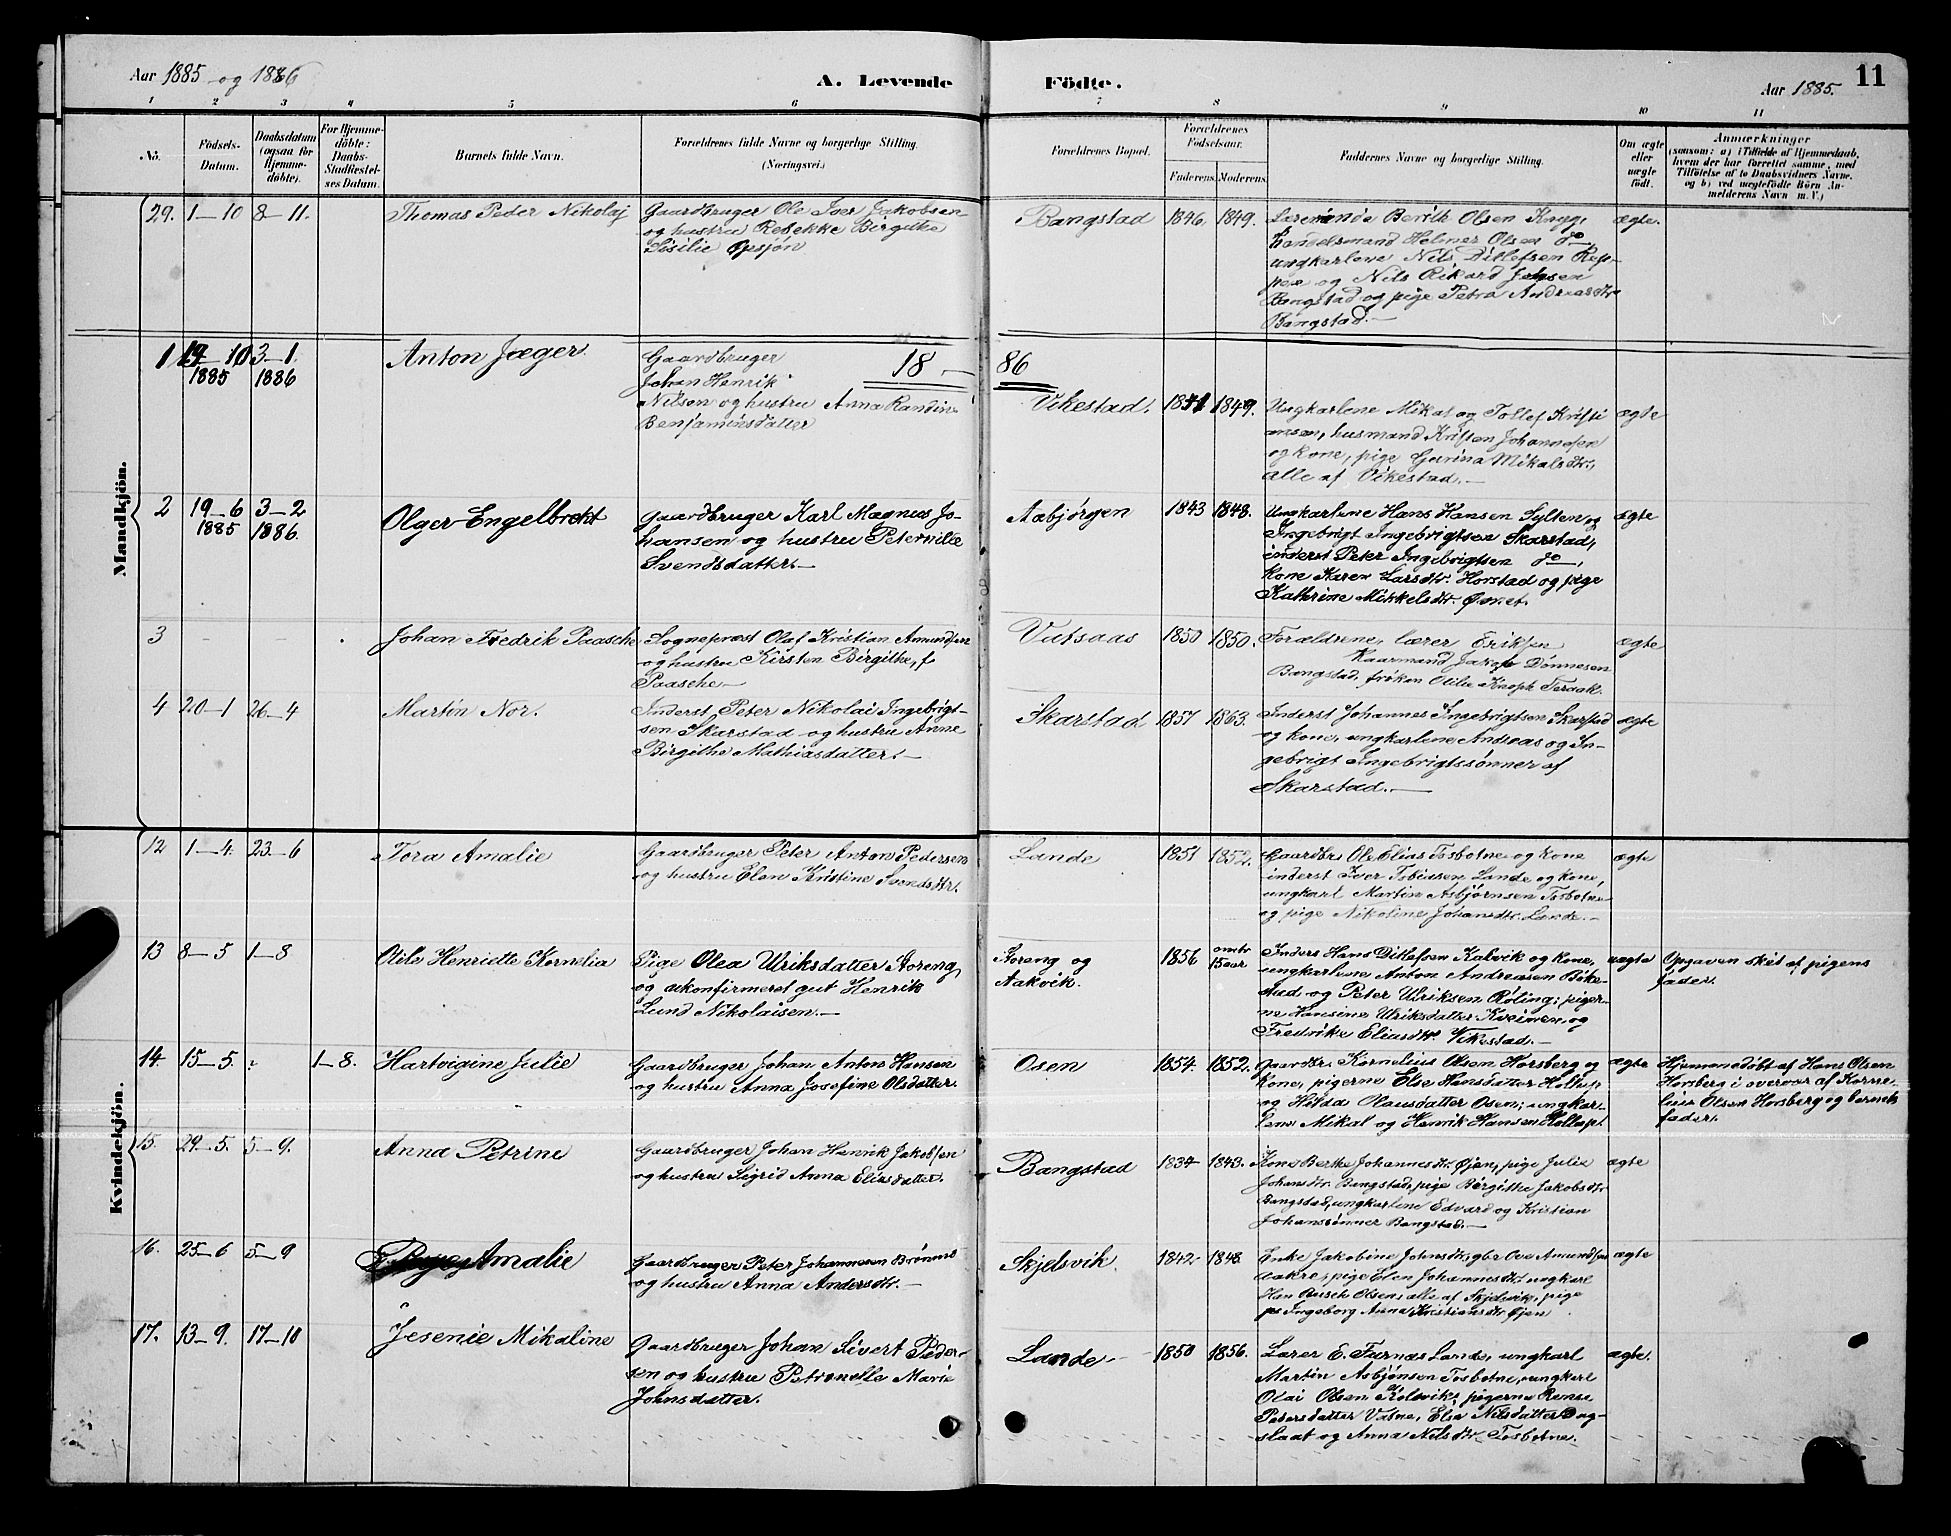 Aar 1885 og 1886
A. Levende Födte.
Aar 1885. 11
1 2 3 4 5 6 7 8 9 10 11
No.
Födsels-
Datum.
Daabsdatum
(ogsaa for
Hjemme-
döbte).
For Hjemme-
döbte:
Daabs-
Stadfæstel-
ses Datum.
Barnets fulde Navn.
Forældrenes fulde Navne og borgerlige Stilling.
(Næringsvei.)
Forældrenes Bopæl.
Forældrenes
Födselsaar.
Faderens. Moderens.
Faddernes Navne og borgerlige Stilling.
Om ægte
eller
uægte
födt.
Anmærkninger
(saasom: a) i Tilfælde af Hjemmedaab,
hvem der har forrettet samme, med
Tilföielse af to Daabsvidners Navne,
og b) ved uægtefödte Börn An-
melderens Navn m. V.)
Mandkjön.
29. 1–10 8–11. Thomas Peder Nikolaj
Gaardbruger Ole Iver Jakobsen
og hustru Rebekke Birgithe
Sisilie Øesjøn
Bangstad 1846. 1849.
Olsen
Handelsmand Helmer Olsen do
ungkarlene Nils Ditlefsen Rep-
pen og Nils Rikard Jensen
Bangstad og pige Petra Andreasdtr
Bangstad.—
ægte.
18 — 86
1 19–10 1885 3–1. 1886 Anton Jæger
Gaardbruger
Johan Henrik
Nilsen og hustru Anna Randine
Benjaminsdatter
Vikestad. 1851 1849.
Ungkarlene Mikal og Tollef Kristi
ansen, husmand Kristen Johannesen
og kone, pige Gurina Mikalsdtr.,
alle af Vikestad.—
ægte
2 19–6 1885 3–2 1886. Olger Engelbrekt
Gaardbruger Karl Magnus Jo-
hansen og hustru Peterville
Svendsdatter.—
Aabjørgen 1843 1848.
Ungkarlene Hans Hansen Sylten og
Ingebrigt Ingebrigtsen Skarstad,
inderst Peter Ingebrigtsen do—,
kone Karen Larsdtr. Horstad og pige
Kathrine Mikkelsdtr.
ægte
3 – – – Johan Fredrik Paasche
Sogneprest Olaf Kristian Amundsen
og hustru Kirsten Birgithe, f
Paasche—
Vatsaas 1850 1850.
Forældrene, lærer Eriksen
Kaarmand Jakob Dønnesen
Bangstad, frøken Otilie Knoph Teraak.
ægte
4 20–1 26–4 Martin Nor.
Inderst Peter Nikolai Ingebrigt-
sen Skarstad og hustru Anne
Birgithe Mathiasdatter.—
Skarstad 1857 1863.
Inderst Johannes Ingebrigtsen Skarstad
og kone, ungkarlene Andreas og In-
gebrigt Ingebrigtssønner af
Skarstad.—
ægte
Kvindekjön.
12 1–4. 23–6 Tora Amalie
Gaardbruger Peter Anton Pedersen
og hustru Elen Kristine Svendsdtr.
Lande 1851 1852.
Gaardbr. Ole Elias Tosbotne og kone
inderst Iver Tobiassen Lande og kone,
ungkarl Martin Asbjørnsen Tosbotne
og pige Nikoline Johansdtr. Lande.—
ægte
13 8–5 1–8 Otile Henriette Kornelia
Pige Olea Ulriksdatter Aoreng
og ukonfirmeret gut Henrik
Lund Nikolaisen.—
Aoreng og
Aakvik. 1856 omtr
15 aar
Inders Hans Ditlefsen Kalvik og kone,
ungkarlene Anton Andreasen
og Peter Ulriksen Røling; piger-
ne Hansine Ulriksdatter og
Fredrike Eliasdtr. Vikestad.—
uægte Opgaven sket af pigens
fader.
14. 15–5. 1–8. Hartvigine Julie
Gaardbruger Johan Anton Hansen
og hustru Anna Josefine Olsdatter.
Osen 1854. 1852.
Gaardbr. Kornelius Olsen Horsberg og
kone, pigerne Else Hansdatter
og Hilda Olausdatter Osen; ungkar-
lene Mikal og Henrik Hansen
ægte Hjemmedøbt af Hans Olsen
Horsberg i overvær af Korne-
lius Olsen Horsberg og barnets
fader.
15. 29–5. 5–9. Anna Petrine
Gaardbruger Johan Henrik Jakobsen
og hustru Sigrid Anna Eliasdatter.
Bangstad 1834 1843.
Kone Berthe Johannesdtr. Øjen, pige Julie
Johansdtr. Bangstad, pige Birgithe Jakobsdtr
Bangstad, ungkarlene Edvard og Kristian
Johanssønner Bangstad.—
ægte
16. 25–6 5–9 Amalie
Gaardbruger Peter Johannesen Brønmo
og hustru Anna Andersdtr.—
Skjelsvik. 1842 1848
Enke Jakobine Johnsdtr., gbr Ove Amundsen
Aakre, pige Elen Johannesdtr. ungkarl
Han Busch Olsen, alle af Skjelsvik, pige
Ingeborg Anna Kristiansdtr Øjen
ægte
17. 13–9. 17–10 Jesenie Mikaline
Gaardbruger Johan Sivert Peder-
sen og hustru Petronelle Marie
Johnsdatter.
Lande 1850 1856.
Lærer E. Furnæs Lande, ungkarl
Martin Asbjønsen Tosbotne, ungkarl
Olai Olsen Kolsvik, pigerne
Petersdatter Vatne, Elsa Nilsdatter Dag-
slaat og Anna Nilsdtr. Tosbotne.
ægte.